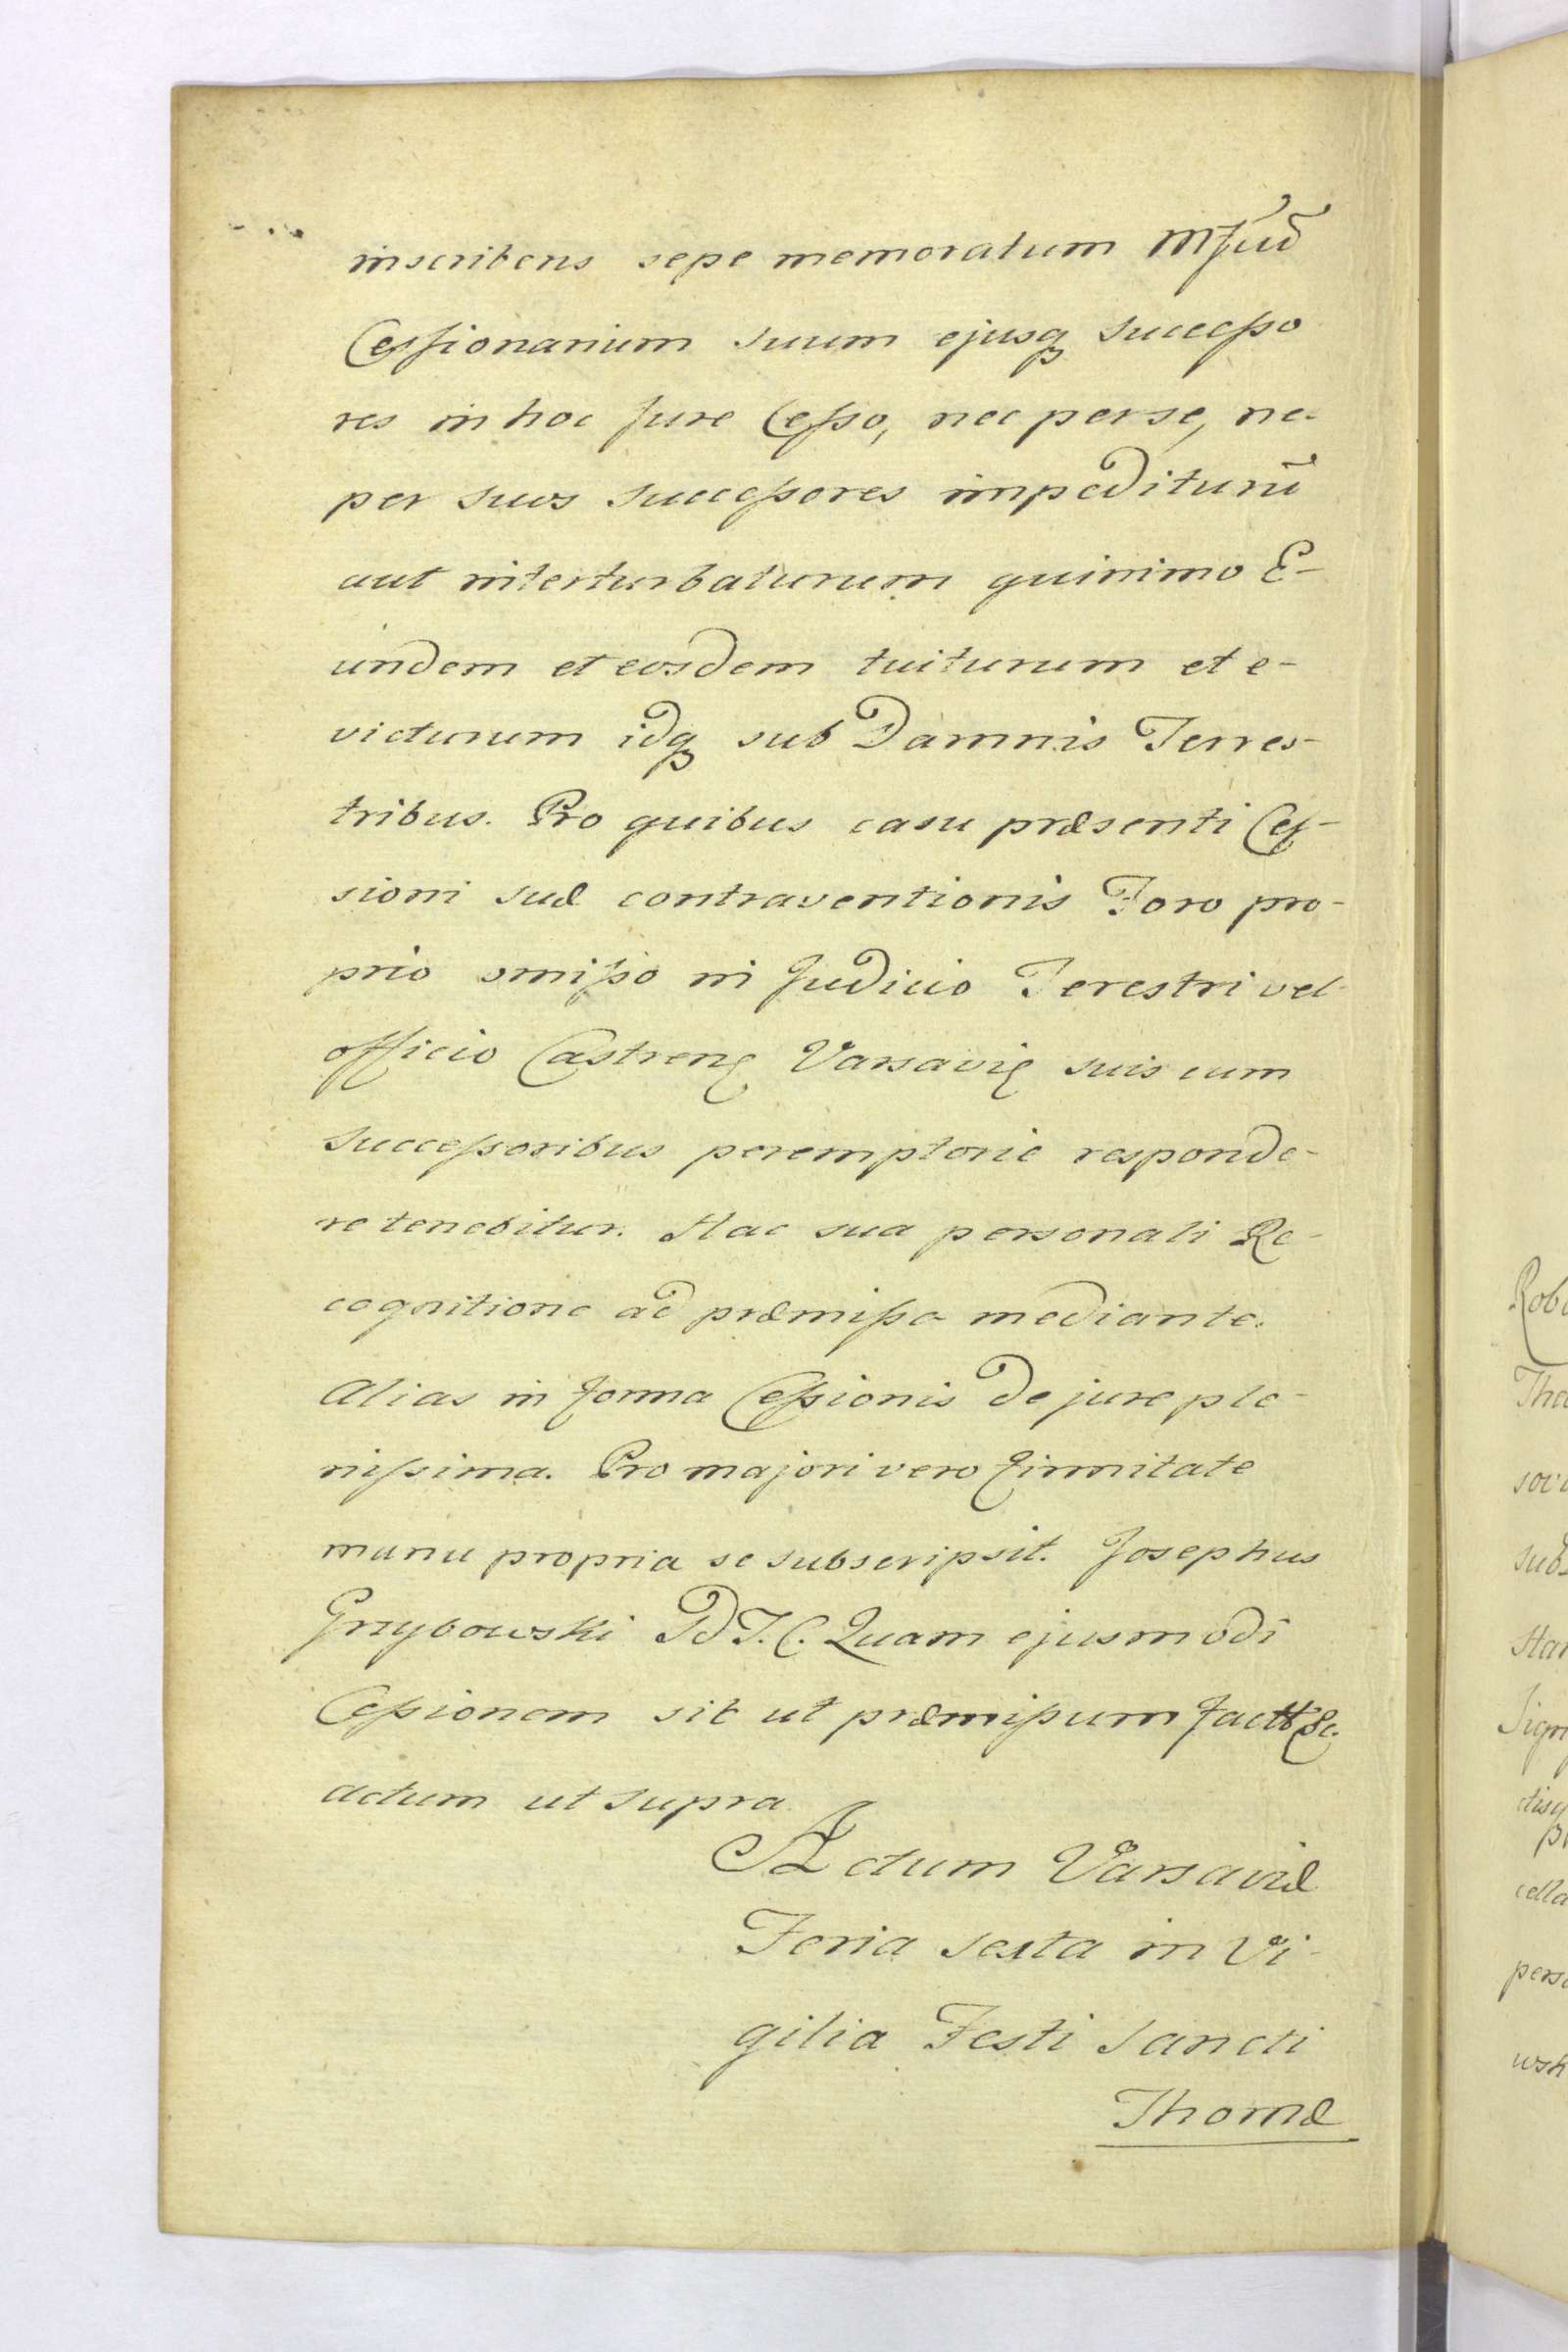 inscribens sepe memoratum Mfcũ
Cessionarium suum ejusq successo
res in hoc Jure Cesso, nec per se, ne-
per suos successores impediturũ
aut interturbaturum quinimo E-
undem et eosdem tuiturum et e-
victurum idq sub Damnis Terres-
tribus. Pro quibus casu præsenti Ces-
sioni suæ contraventionis Foro pro-
prio omisso in Judicio Terestri vel
officio Castren Varsavi suis cum
successoribus peremptorie responde-
re tenebitur. Hac sua personali Re-
cognitione ad præmissa mediante.
Alias in forma Cessionis de jure ple-
nissima. Pro majori vero firmitate
manu propria se subscripsit. Josephus
Grzybowski PdT.C. Quam ejusmodi
Cessionem sit ut præmissum factt &c.
actum ut supra
Actum Varsaviæ
Feria sexta in Vi-
gilia Festi Sancti
Thomæ
Tha
sub
Sign
cella
pers
wsk